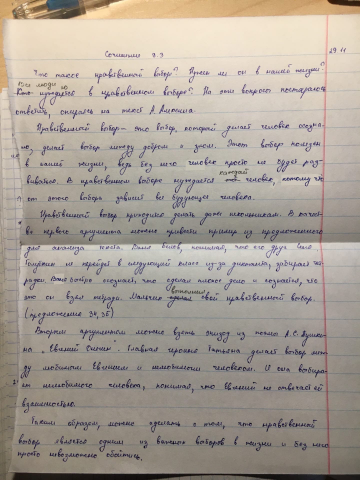 Сочинение 9.3
29.11
Что такое нравственный выбор? Нужен ли он в нашей жизни?
Все люди
нуждаются в нравственном выборе? На эти вопросы постараюсь
ответить, опираясь на текст А. Лиханова.
Нравственный выбор – это выбор, который делает человек осозна-
но, делает выбор между добром и злом. Этот выбор полезен
в нашей жизни, ведь без него человек просто не будет раз-
виваться. В нравственном выборе нуждается каждый человек, потому что
от этого выбора зависит все будущее человека.
Нравственный выбор приходится делать даже школьникам. В качест-
ве первого аргумента можно привести пример из предложенного
для анализа текста. Ваня Белов, понимая, что его друг Ваня
не перейдёт в следующий класс из-за диктанта, забирает те-
тради. Ваня осознаёт, что сделал плохое дело и сознаётся, что
это он взял тетради. Мальчик выполнил свой нравственный выбор.
(предложение 34, 35)
Вторым аргументом можно взять эпизод из поэмы А.С Пушки-
на "Евгений Онегин". Главная героиня Татьяна делает выбор меж-
ду любимым Евгением и нелюбимым человеком. И она выбира-
ет нелюбимого человека, понимая, что Евгений не отвечает ей
взаимностью.
Таким образом, можно сделать о том, что нравственный
выбор является одним из важных выборов в жизни и без него
просто невозможно обойтись.